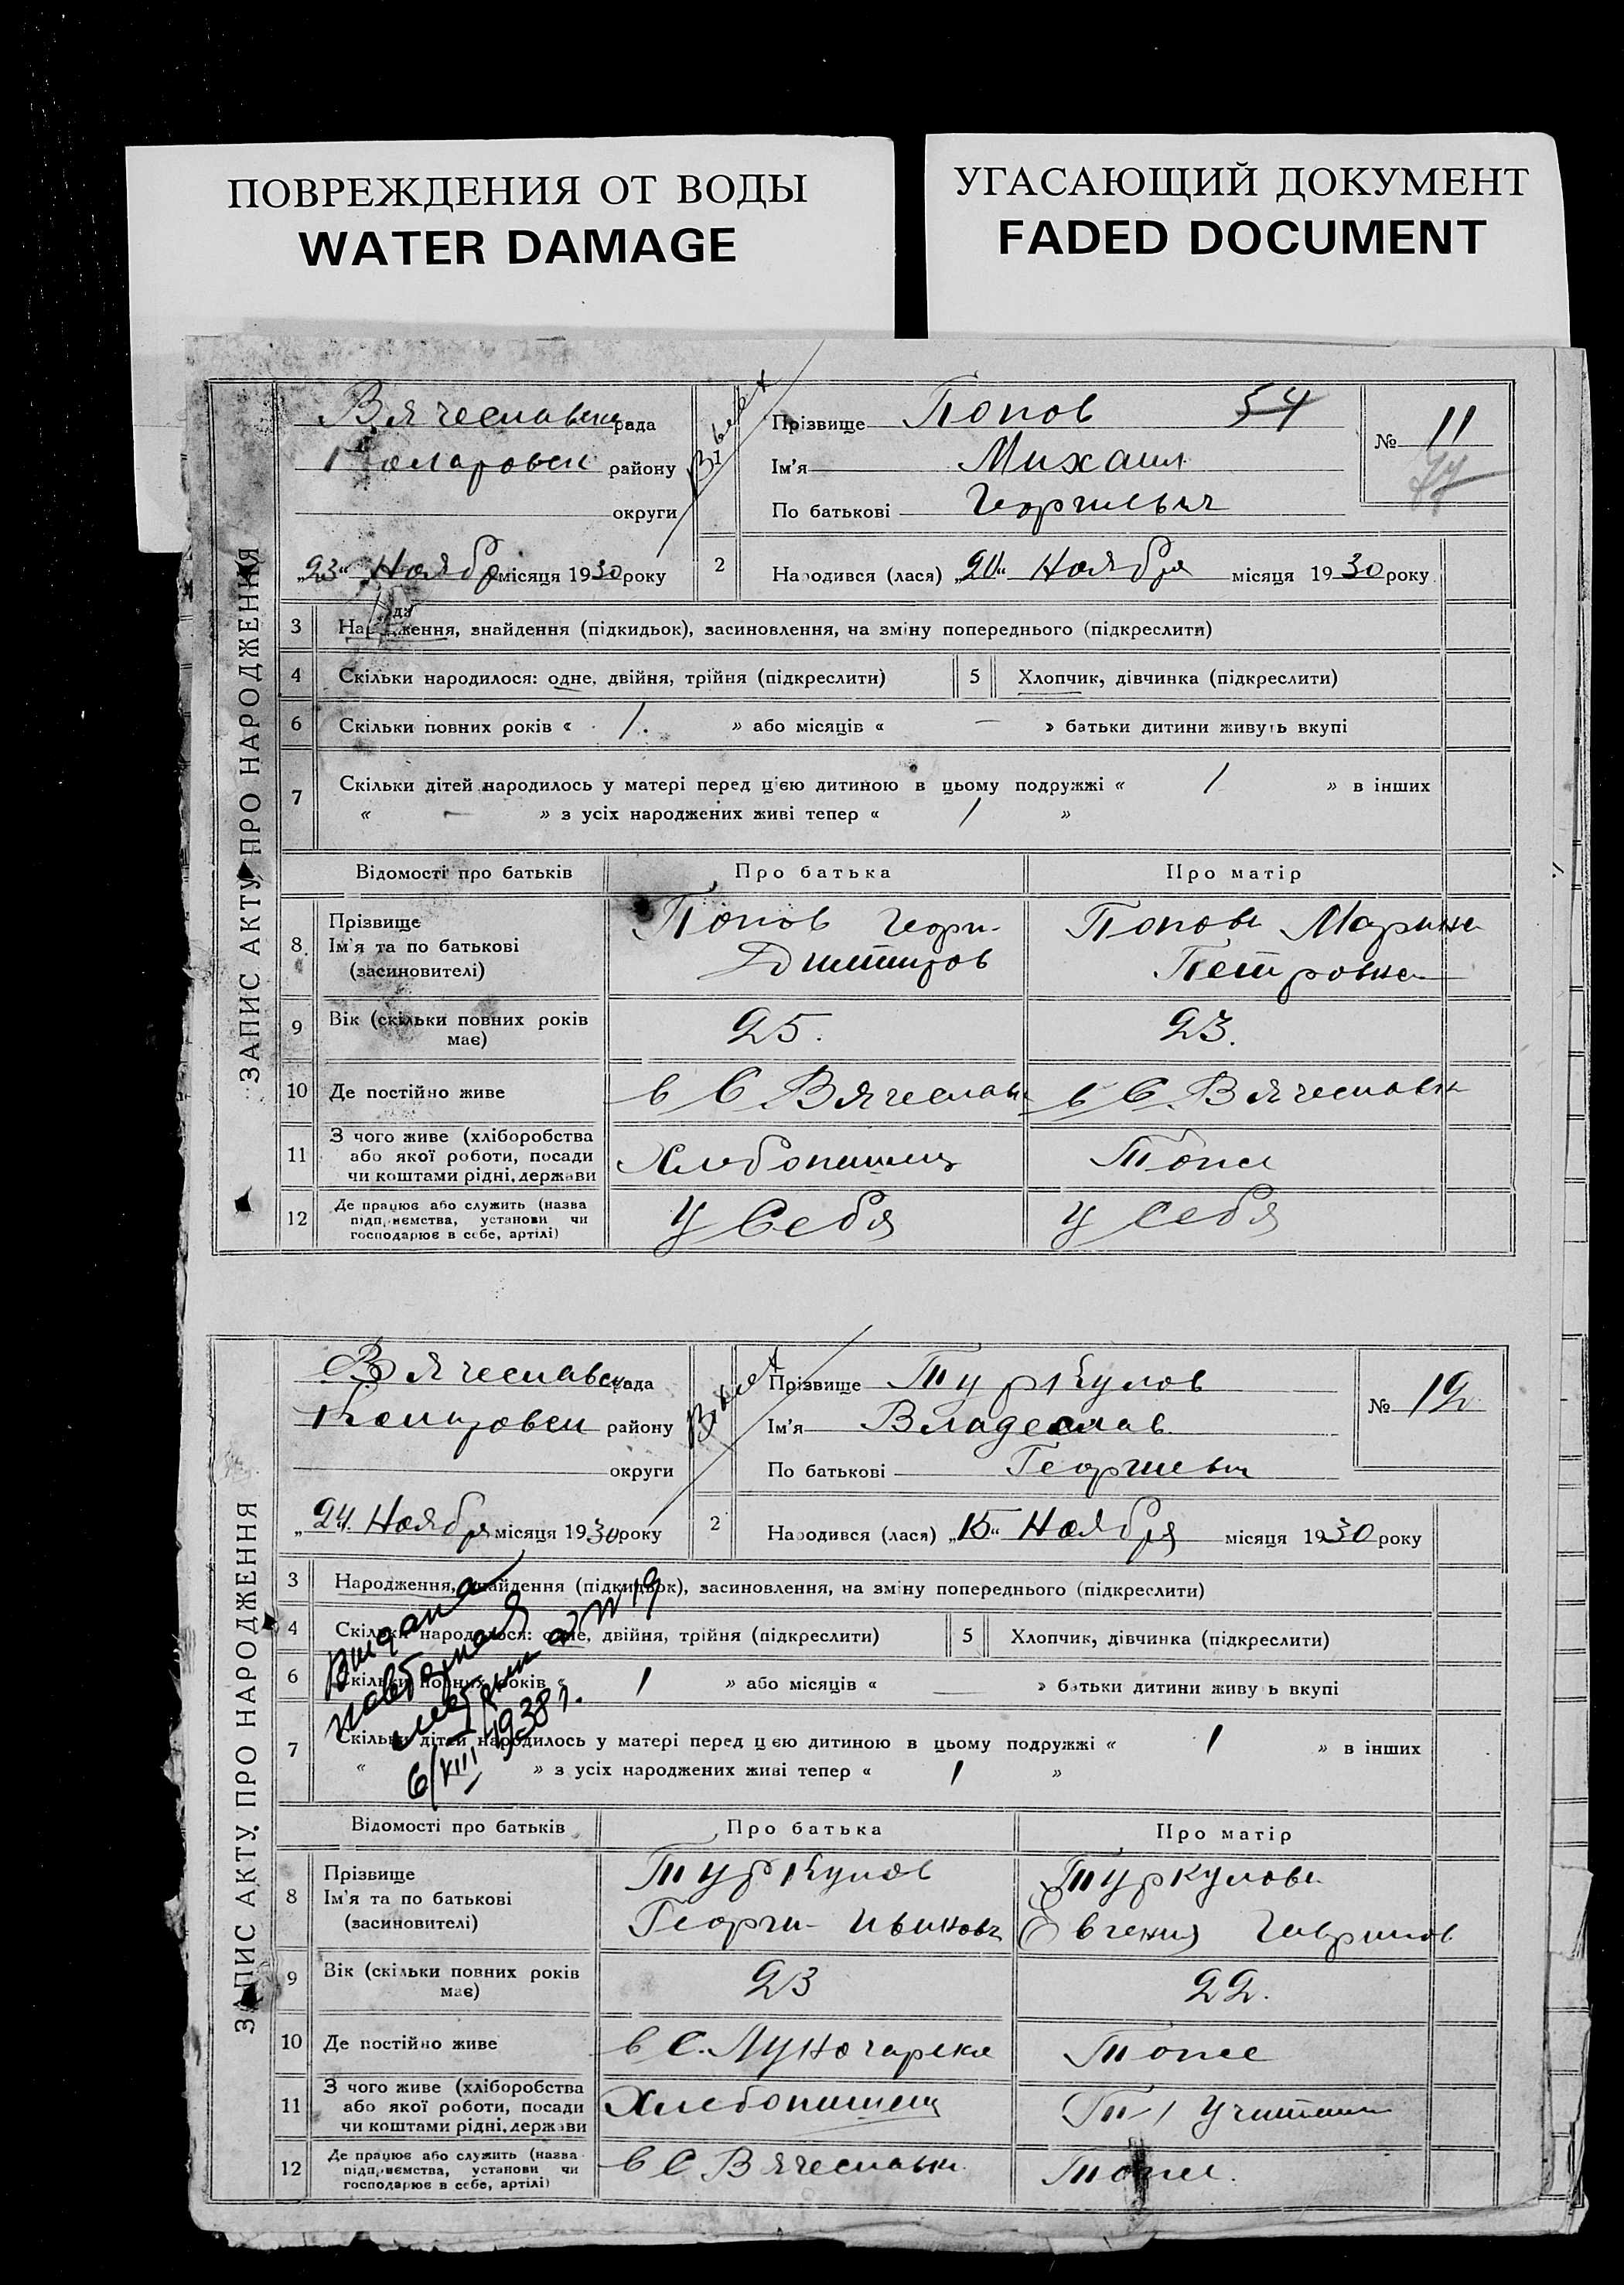 ПОВРЕЖДЕНИЯ ОТ ВОДЫ
WATER DAMAGE
УГАСАЮЩИЙ ДОКУМЕНТ
FADED DOCUMENT
ЗАПИС АКТУ ПРО НАРОДЖЕННЯ
Вячеславск рада
району
округи
„23“ Ноября місяця 1930 року
Прізвище Попов 54
Ім'я Михаил
По батькові Георгиевич
№ 11
2 Народився (лася) „20“ Ноября місяця 1930 року
3 Народження, знайдення (підкидьок), засиновлення, на зміну попереднього (підкреслити)
4 Скільки народилося: одне, двійня, трійня (підкреслити) 5 Хлопчик, дівчинка (підкреслити)
6 Скільки повних років « 1. » або місяців « — » батьки дитини живуть вкупі
7 Скільки дітей народилось у матері перед цією дитиною в цьому подружжі « 1 » в інших
« — » з усіх народжених живі тепер « 1 »
Відомості про батьків Про батька Про матір
8 Прізвище
Ім'я та по батькові
(засиновителі)
Попов Георг-
Дмитров
Попова Марина
Петровна
9 Вік (скільки повних років
має) 25. 23.
10 Де постійно живе в С Вячеславк в С. Вячеславк
11 З чого живе (хліборобства
або якої роботи, посади
чи коштами рідні, держави
Хлебопашец Тоже
12 Де працює або служить (назва
підприємства, установи чи
господарює в себе, артілі)
У Себя У Себя
ЗАПИС АКТУ ПРО НАРОДЖЕННЯ
Вячеславск рада
району
округи
„24. Ноября місяця 1930 року
Прізвище Туркулов
Ім'я Владеслав
По батькові Георгиевич
№ 12
2 Народився (лася) „15“ Ноября місяця 1930 року
3 Народження, знайдення (підкидьок), засиновлення, на зміну попереднього (підкреслити)
4 Скільки народилося: одне, двійня, трійня (підкреслити) 5 Хлопчик, дівчинка (підкреслити)
6 Скільки повних років « 1 » або місяців « — » батьки дитини живуть вкупі
7 Скільки дітей народилось у матері перед цією дитиною в цьому подружжі « 1 » в інших
« » з усіх народжених живі тепер « 1 »
6/VIII 1938 г.
Відомості про батьків Про батька Про матір
8 Прізвище
Ім'я та по батькові
(засиновителі)
Туркулов
Георги- Иванов
Туркулова
Евгения Гаврилов
9 Вік (скільки повних років
має) 23 22.
10 Де постійно живе в С. Луночарска Тоже
11 З чого живе (хліборобства
або якої роботи, посади
чи коштами рідні, держави
Хлебопашец
12 Де працює або служить (назва
підприємства, установи чи
господарює в себе, артілі)
в С Вячеславк Тоже.